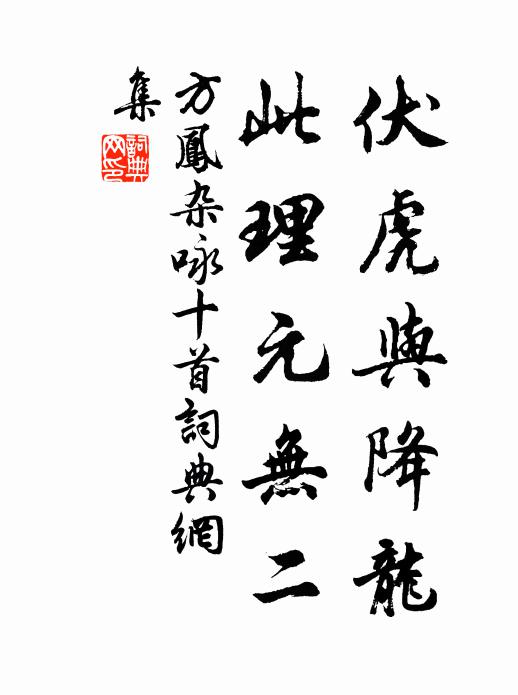 伏虎與降龍
此理元無二
方鳳杂咏十首詞典網
集
詞典
网印